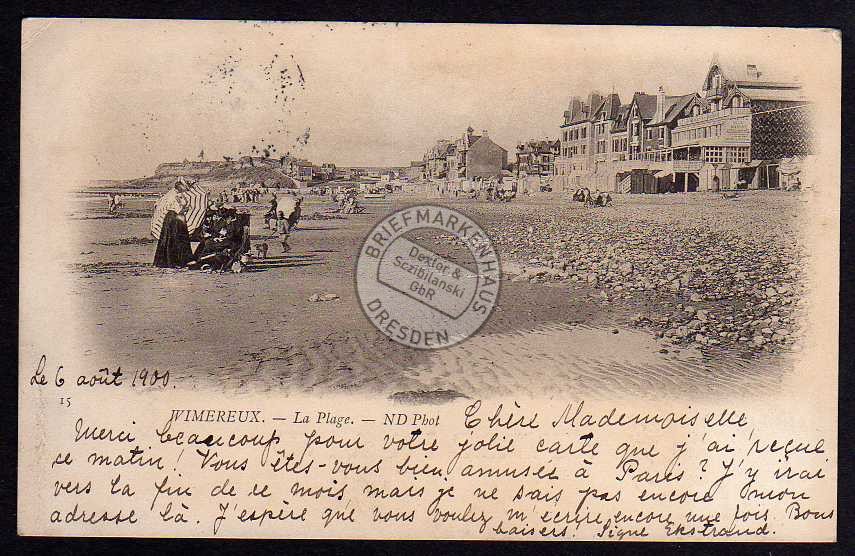 BRIEFMARKENHAUS
Dexler &
Sczibilanski
GbR
DRESDEN
Le 6 août 1900.
15
WIMEREUX. — La Plage. — ND Phot
Chère Mademoiselle,
Merci beaucoup pour votre jolie carte que j'ai reçue
ce matin! Vous êtes-vous bien amusée à Paris? J'y irai
vers la fin de ce mois, mais je ne sais pas encore mon
adresse là. J'espère que vous voulez m'écrire encore une fois. Bons
baisers. Signe Ekstrand.